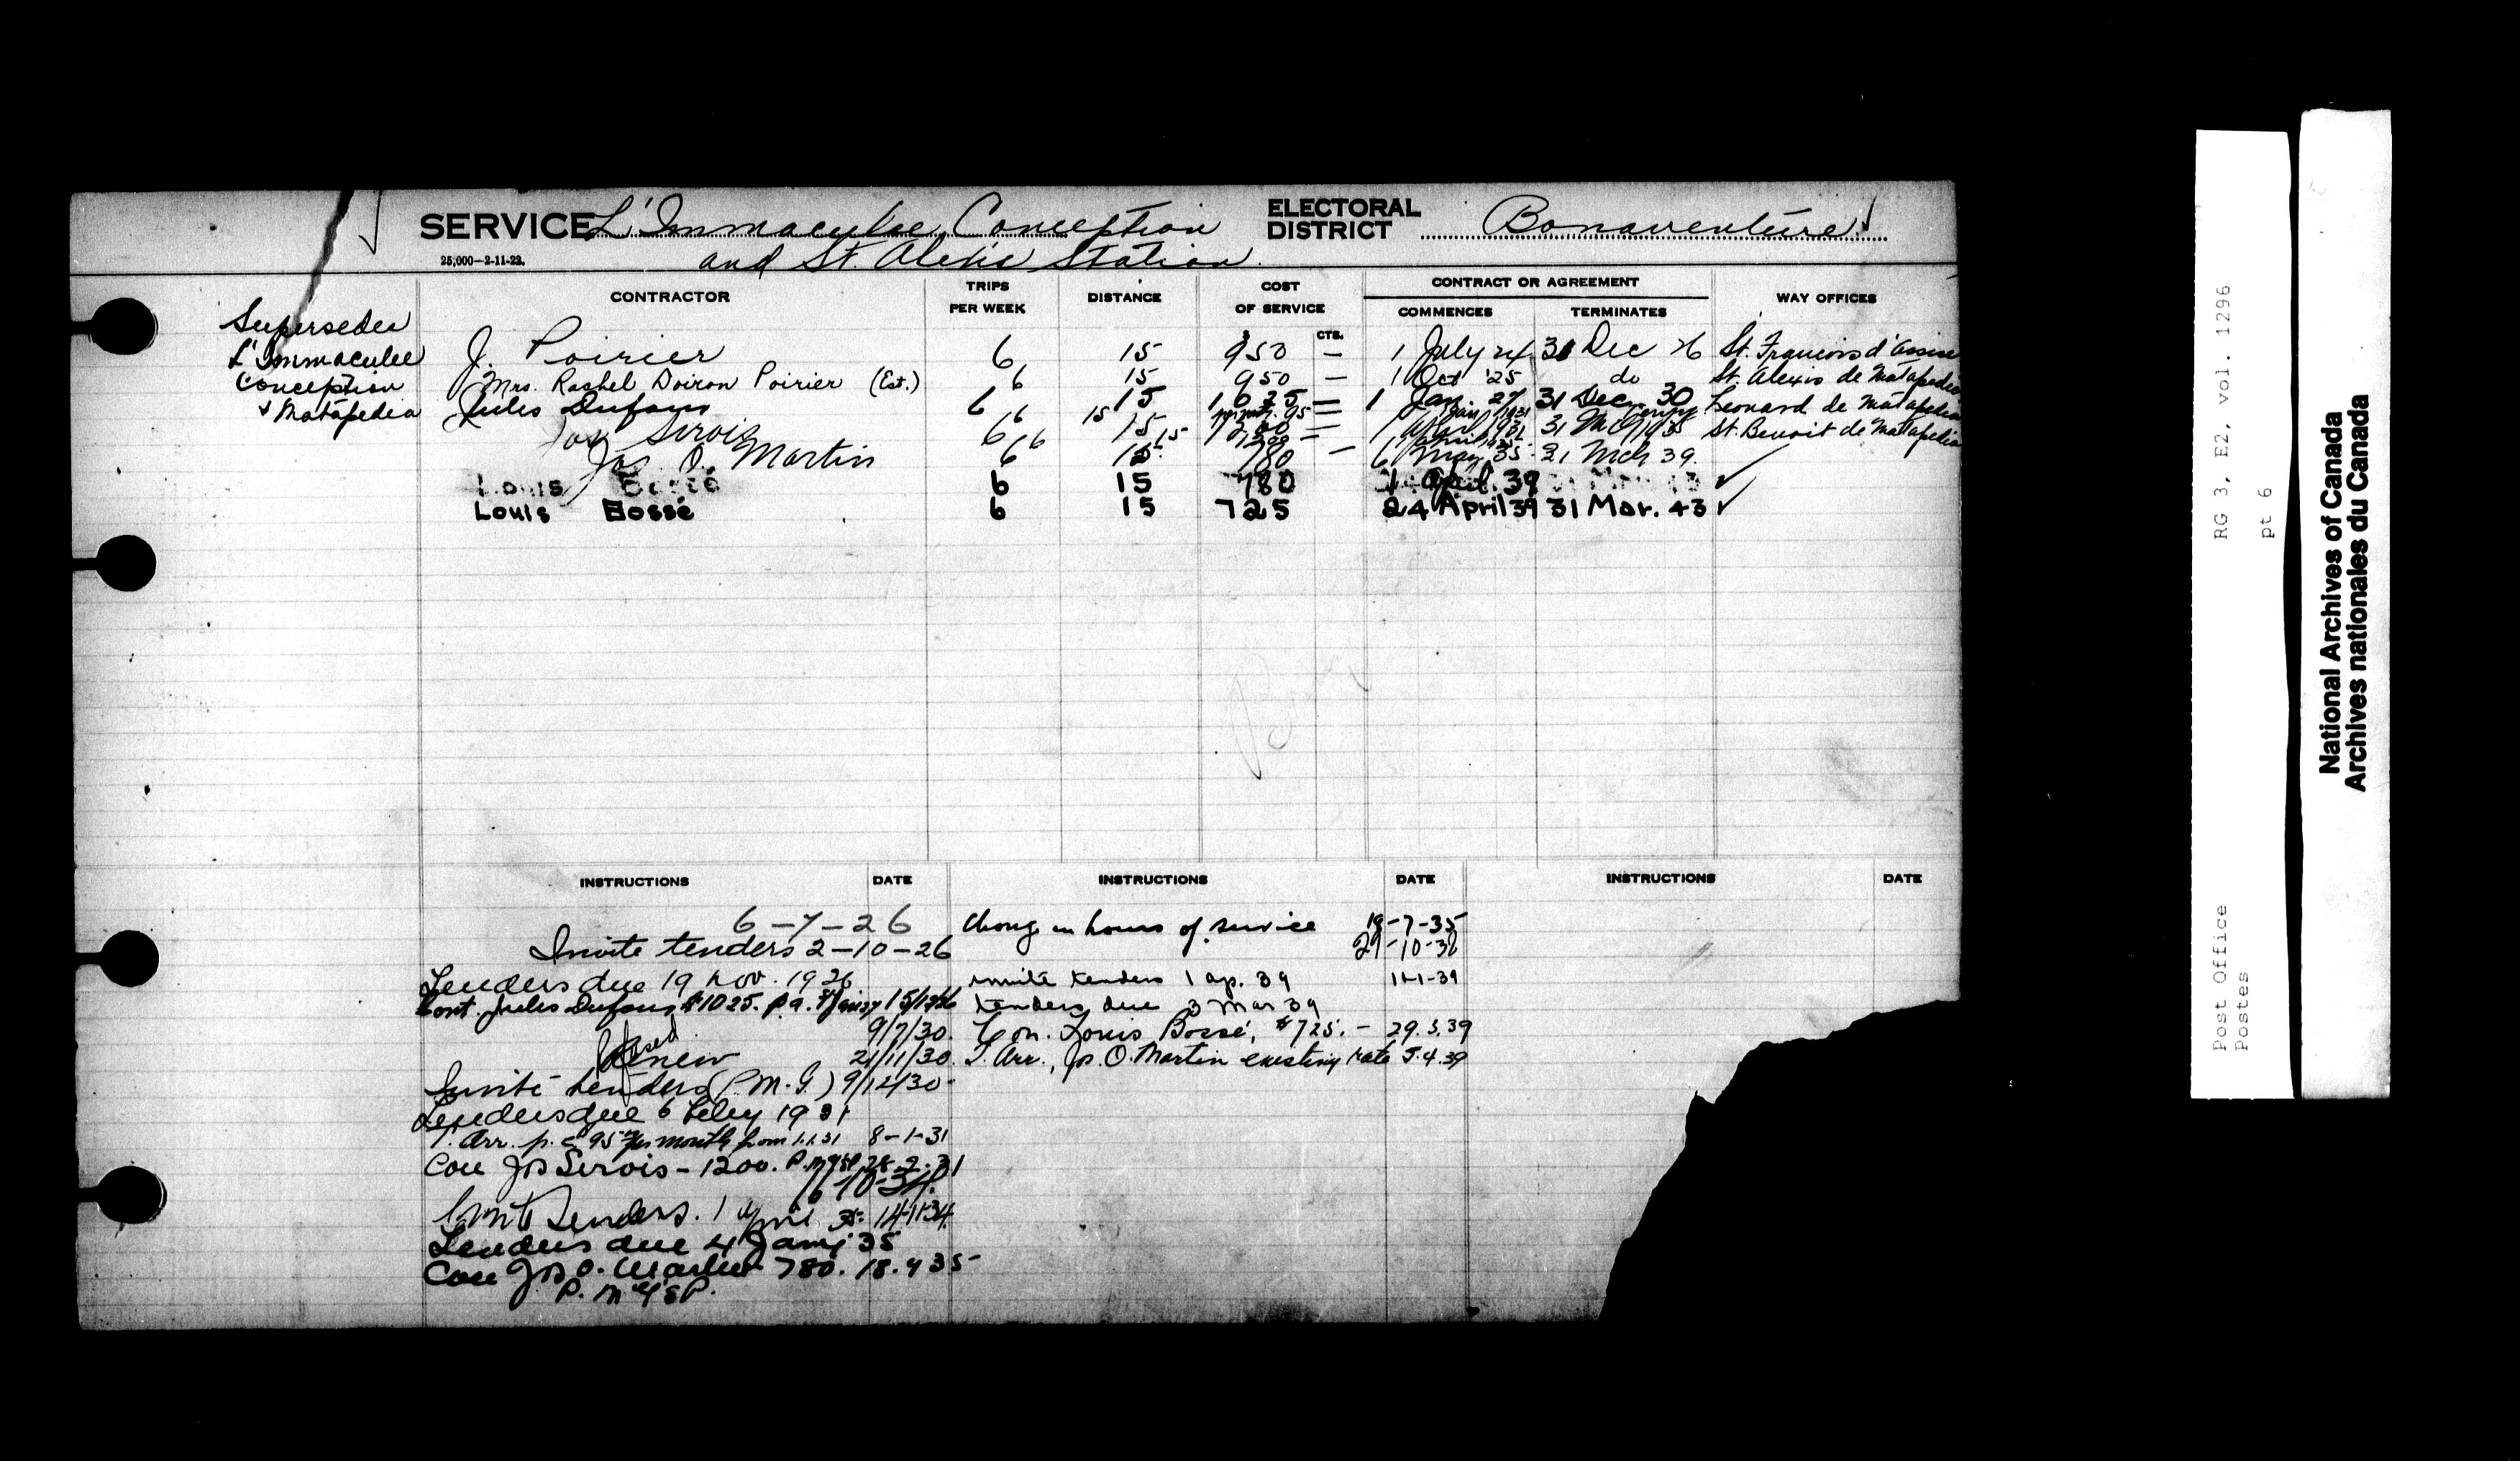 SERVICE L'Immaculee Conception
and St. Alexis Station
25,000—2-11-22.
ELECTORAL DISTRICT Bonaventure
CONTRACTOR
TRIPS PER WEEK
DISTANCE
COST OF SERVICE
CTS.
CONTRACT OR AGREEMENT
COMMENCES
TERMINATES
WAY OFFICES
Supersedes
L'Immaculee
Conception
& Matapedia
J. Poirier 6 15 $950 — 1 July 24 31 Dec 26 St. Francois d'Assise
Mrs. Rachel Doiron Poirier (Est.) 6 15 950 — 1 Oct '25 do St. Alexis de Matapedia
Jules Dufour 6 15 1025 — 1 Jan. 27 31 Dec. 30 Leonard de Matapedia
Jos Sirois 6 15 1200 — 1 April 1931 31 Mch 1935 St. Benoit de Matapedia
Jos. O. Martin 6 15 780 — 6 May 35 - 31 Mch 39.
Louis Bossé 6 15 780 1 April 39
Louis Bossé 6 15 725 24 April 39 31 Mar. 43
INSTRUCTIONS DATE
6-7-26
Invite tenders 2-10-26
Tenders due 19 Nov. 1926
Cont. Jules Dufour $1025. p.a.
9/7/30.
Renew 21/11/30.
Invite tenders (P.M.G.) 9/12/30-
Tenders due 6 Feby 1931
T. Arr. p.c. 95 per month from 1.1.31 8-1-31
Con Jos Serois - 1200. 28-2-31
16-10-34
Invite Tenders. 1 April 35- 14-11-34.
Tenders due 4 Jany 35
Con Jos O. Martin 780. 18.4 35-
INSTRUCTIONS DATE
Change in hours of service 18-7-35
29-10-38
invite tenders 1 ap. 39 11-1-39
tenders due 3 Mar 39
Con. Louis Bossé, $725. - 29.3.39
T. Arr., Jos. O. Martin existing rate 5.4.39
INSTRUCTIONS DATE
RG 3, E2, vol. 1296
pt 6
Post Office
Postes
National Archives of Canada
Archives nationales du Canada